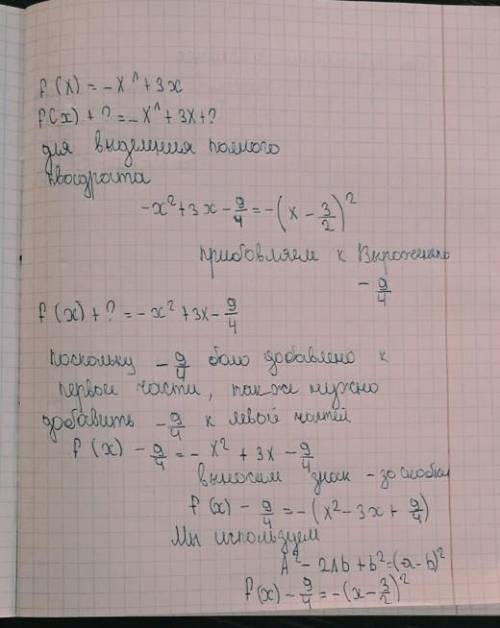 f(x) = -x^ + 3x
f(x) + ? = -x^ + 3x + ?
для выделения полного
квадрата
-x² + 3x - 9/4 = -(x - 3/2)²
прибовляем к выражению
- 9/4
f(x) + ? = -x² + 3x - 9/4
поскольку - 9/4 было добавлено к
первой части, также нужно
добавить - 9/4 к левой частей
f(x) - 9/4 = -x² + 3x - 9/4
выносим знак - за скобки
f(x) - 9/4 = -(x² - 3x + 9/4)
Мы используем
A² - 2Ab + b² = (a - b)²
f(x) - 9/4 = -(x - 3/2)²